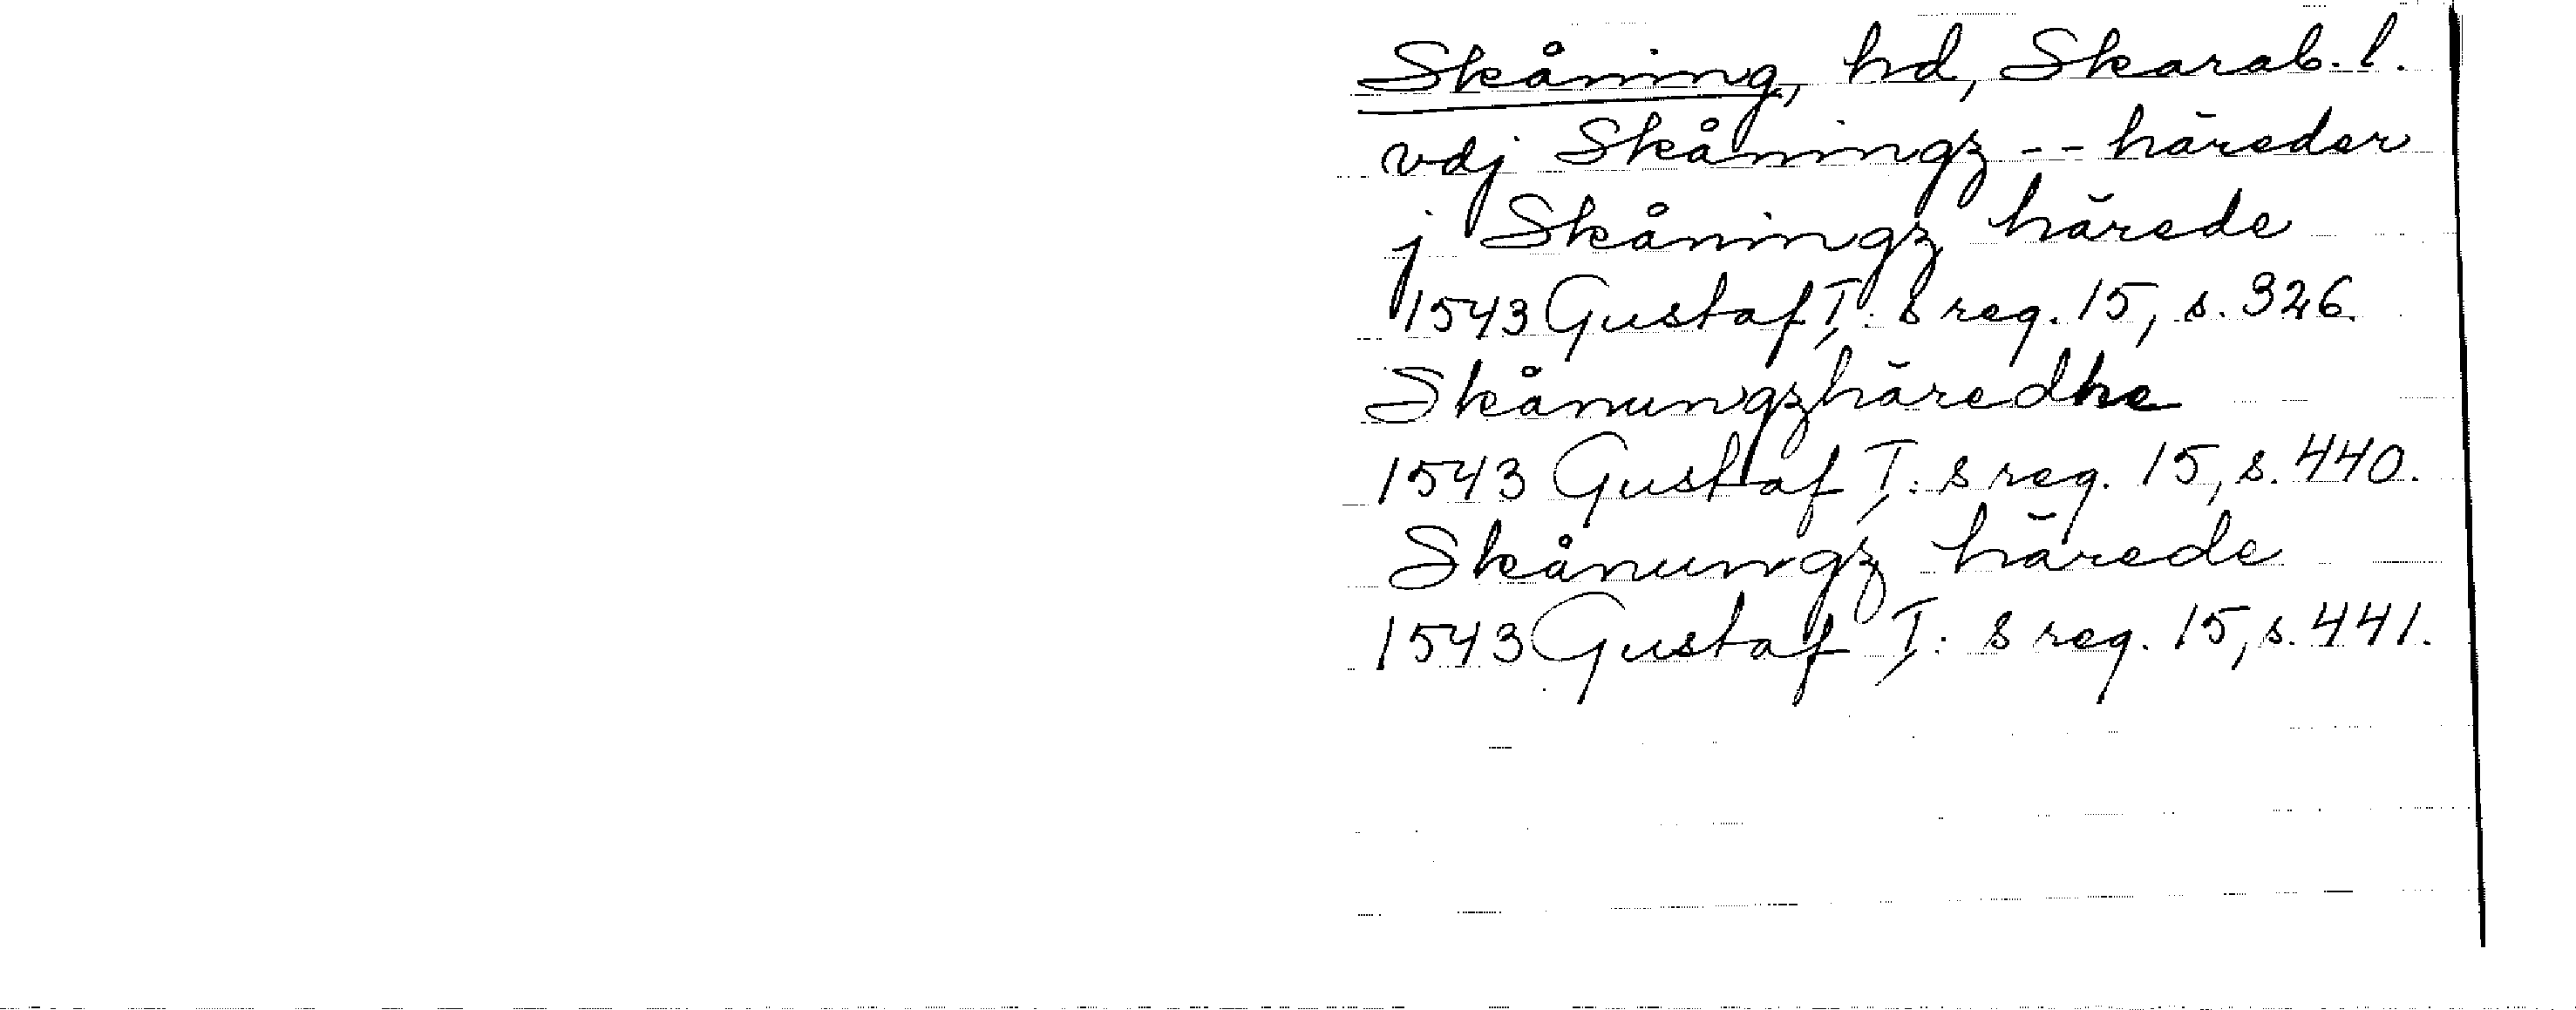 Skåning, hd, Skarab. l.
vdj Skåningz -- häreder
j Skåningz härede
1543 Gustaf I:s reg. 15, s. 326.
Skånungzhäredhe
1543 Gustaf I:s reg. 15, s. 440.
Skånungz härede
1543 Gustaf I:s reg. 15, s. 441.